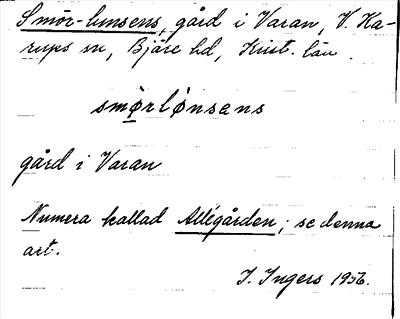 Smör-lunsens, gård i Varan, V. Ka-
rups sn, Bjäre hd, Krist. län.
smørlønsens
gård i Varan
Numera kallad Allégården; se denna
art.
I. Ingers 1956.